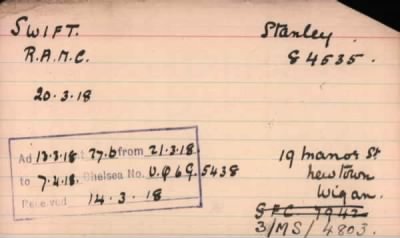 SWIFT. Stanley
R.A.M.C. G 4535.
20.3.18
Ad 13.3.18 27.6 from 21.3.18.
to 7.4.18. Chelsea No. 69.5438
Received 14.3.18
19 Manor St
Newtown
Wigan.
7942
3/MS/4803.